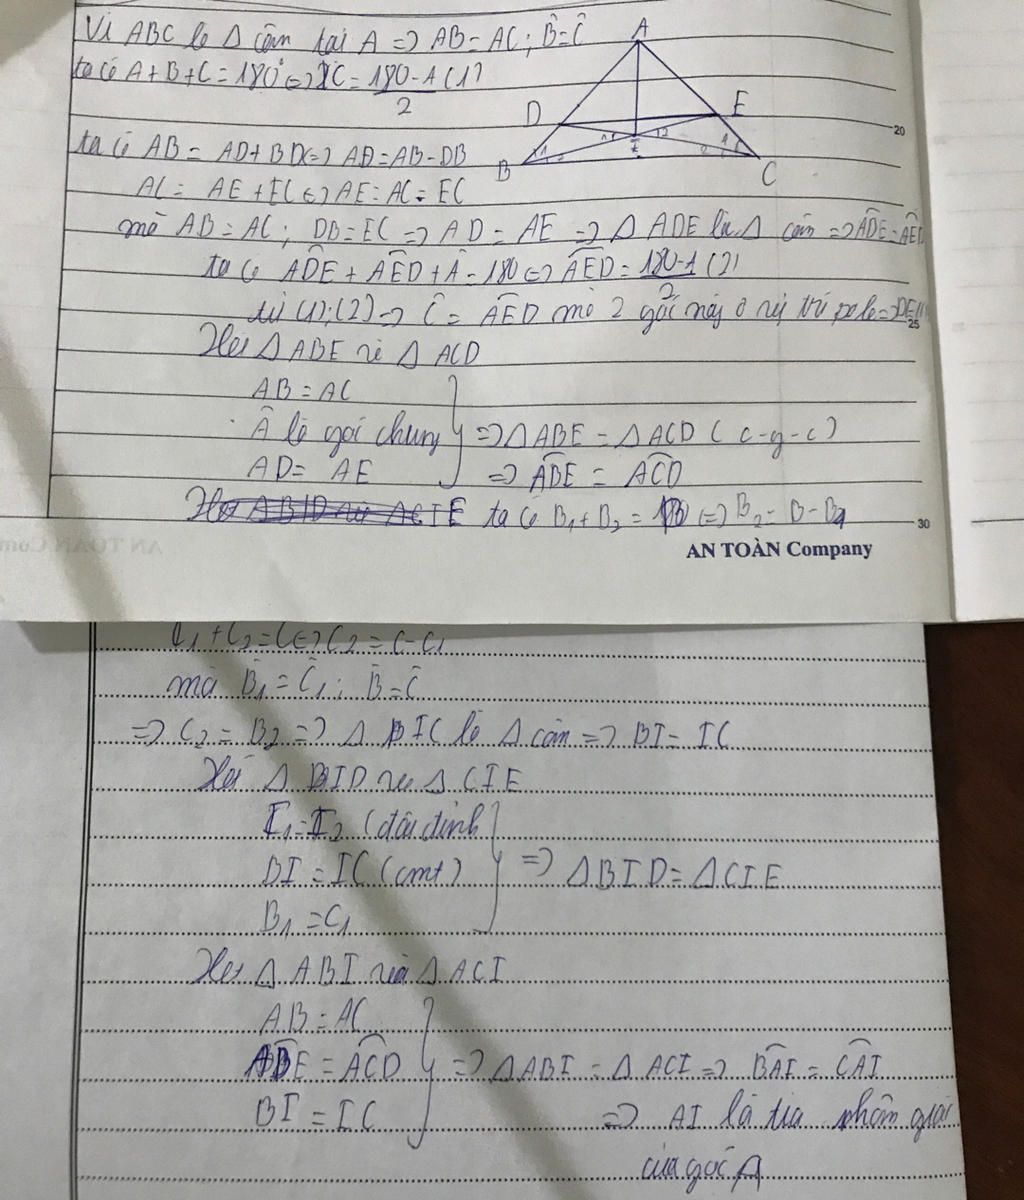 Vì ABC là Δ cân tại A => AB = AC; B̂ = Ĉ
ta có A + B + C = 180° <=> C = 180 - A / 2 (1)
A
D
E
B
C
I
20
ta có AB = AD + BD <=> AD = AB - DB
AC = AE + EC <=> AE = AC - EC
mà AB = AC; DB = EC => AD = AE => Δ ADE là Δ cân => ADE = AED
ta có ADE + AED + Â = 180 <=> AED = 180 - A / 2 (2)
từ (1); (2) => Ĉ = AED mà 2 góc này ở vị trí
25
Xét Δ ABE và Δ ACD
AB = AC
Â là góc chung => Δ ABE = Δ ACD (c-g-c)
AD = AE => ABE = ACD
ta có B1 + B2 = B <=> B2 = B - B1
30
AN TOÀN Company
C1 + C2 = C <=> C2 = C - C1
mà B̂1 = Ĉ1; B̂ = Ĉ
=> C2 = B2 => Δ BIC là Δ cân => BI = IC
Xét Δ BID và Δ CIE
I1 = I2 (đối đỉnh)
BI = IC (cmt) => Δ BID = Δ CIE
B1 = C1
Xét Δ ABI và Δ ACI
AB = AC
ABE = ACD => Δ ABI = Δ ACI => BAI = CAI
BI = IC => AI là tia phân giác
của góc A